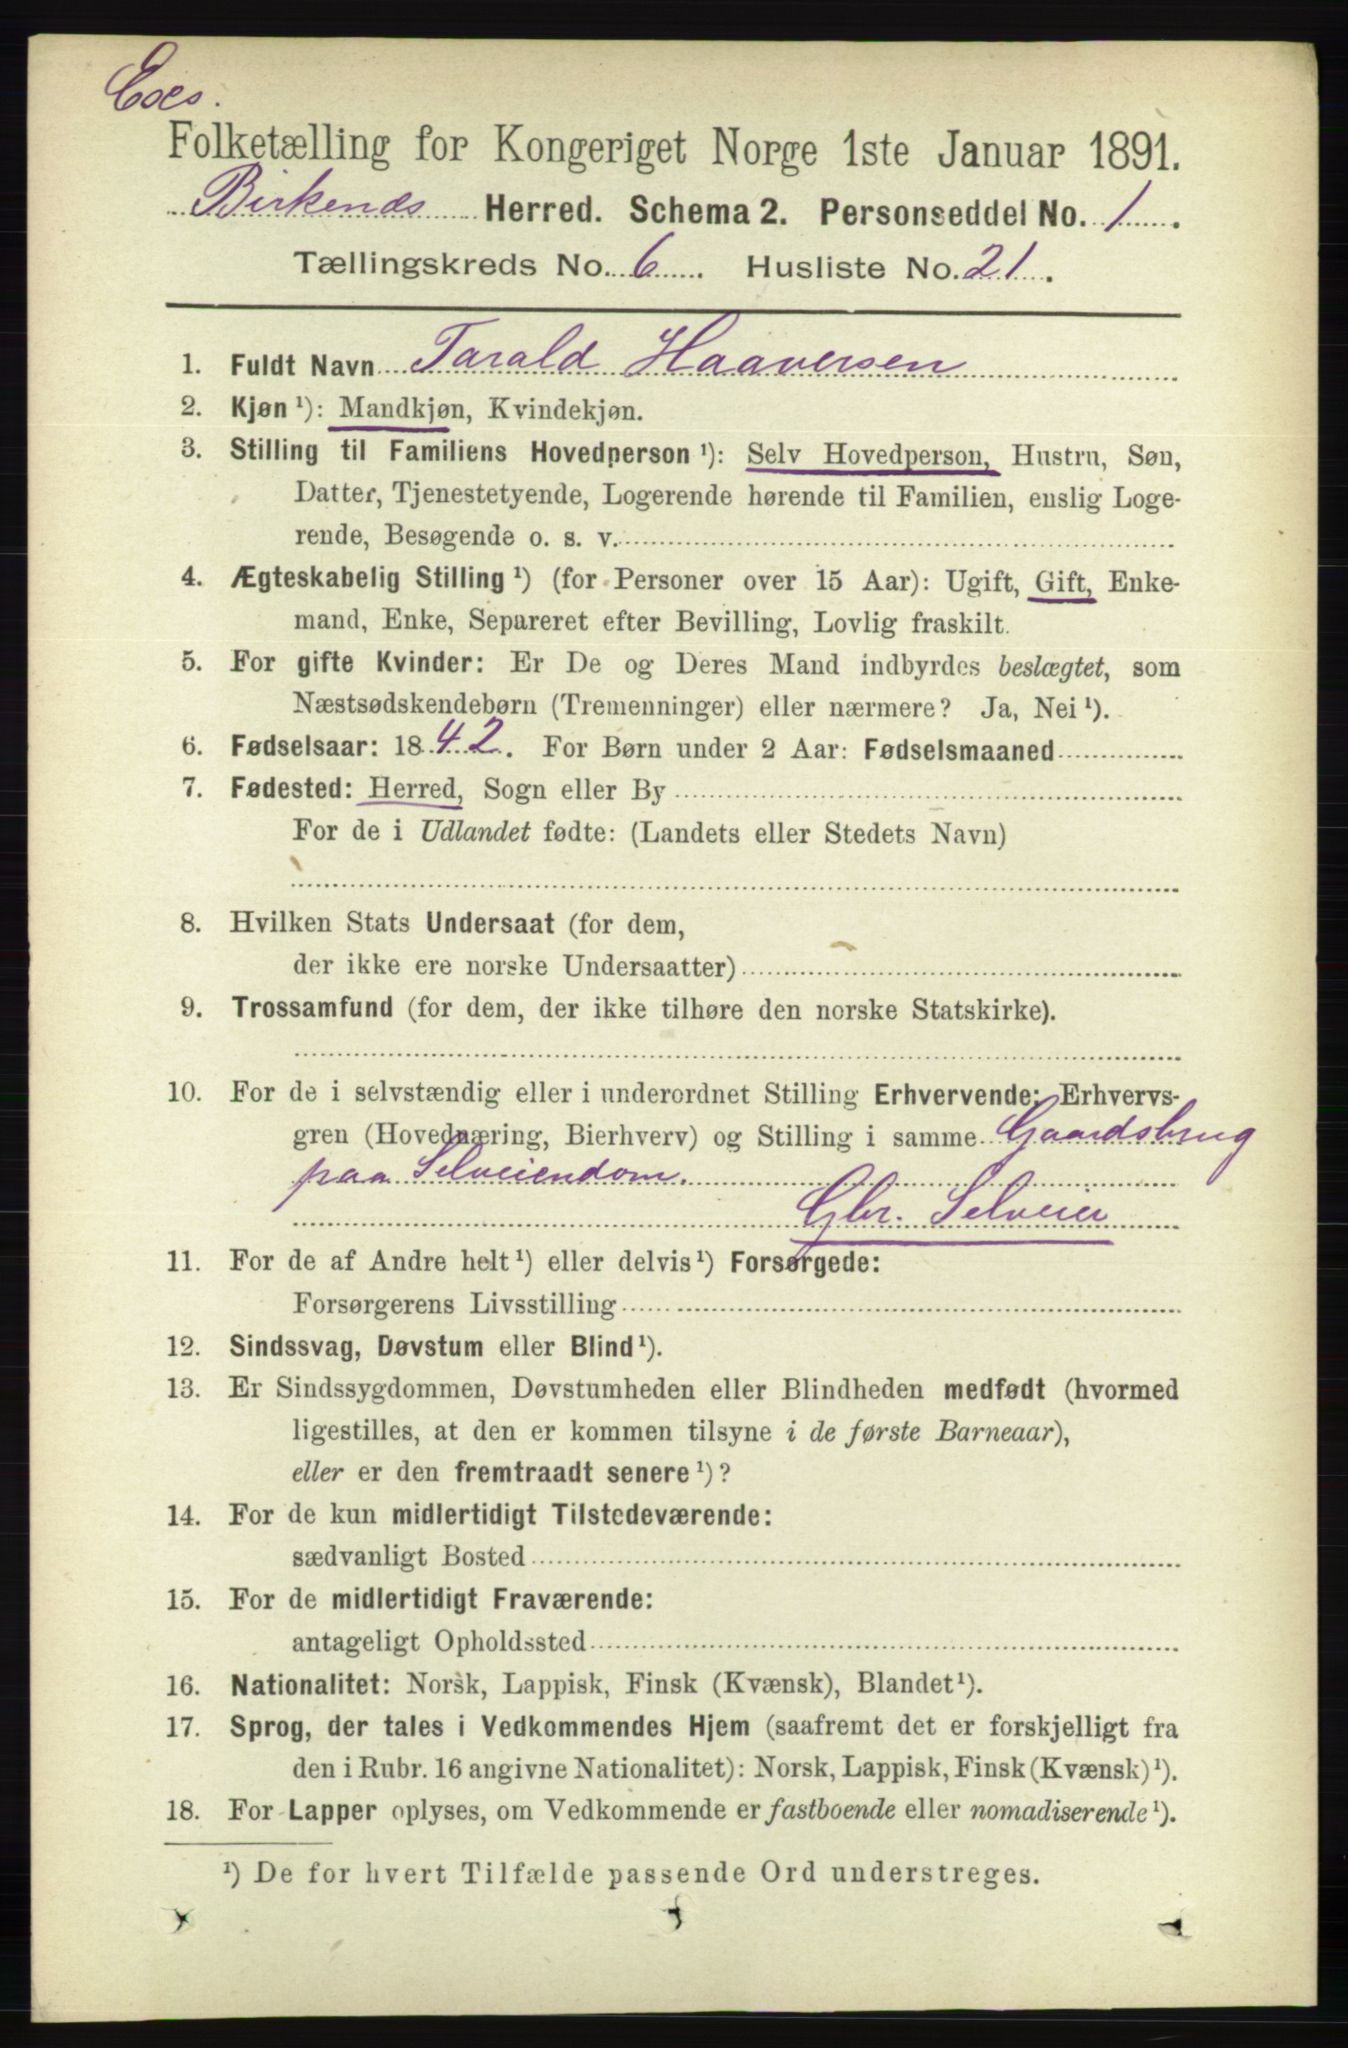 Folketælling for Kongeriget Norge 1ste Januar 1891.
Birkends Herred. Schema 2. Personseddel No. 1.
Tællingskreds No. 6. Husliste No. 21.
1. Fuldt Navn Tarald Haaversen
2. Kjøn ¹): Mandkjøn, Kvindekjøn.
3. Stilling til Familiens Hovedperson ¹): Selv Hovedperson, Hustru, Søn,
Datter, Tjenestetyende, Logerende hørende til Familien, enslig Loge-
rende, Besøgende o. s. v.
4. Ægteskabelig Stilling ¹) (for Personer over 15 Aar): Ugift, Gift, Enke-
mand, Enke, Separeret efter Bevilling, Lovlig fraskilt.
5. For gifte Kvinder: Er De og Deres Mand indbyrdes beslægtet, som
Næstsødskendebørn (Tremenninger) eller nærmere? Ja, Nei ¹).
6. Fødselsaar: 1842. For Børn under 2 Aar: Fødselsmaaned
7. Fødested: Herred, Sogn eller By
For de i Udlandet fødte: (Landets eller Stedets Navn)
8. Hvilken Stats Undersaat (for dem,
der ikke ere norske Undersaatter)
9. Trossamfund (for dem, der ikke tilhøre den norske Statskirke).
10. For de i selvstændig eller i underordnet Stilling Erhvervende: Erhvervs-
gren (Hovednæring, Bierhverv) og Stilling i samme Gaardsbrug
paa Selveiendom.
Gbr. Selveier
11. For de af Andre helt ¹) eller delvis ¹) Forsørgede:
Forsørgerens Livsstilling
12. Sindssvag, Døvstum eller Blind ¹).
13. Er Sindssygdommen, Døvstumheden eller Blindheden medfødt (hvormed
ligestilles, at den er kommen tilsyne i de første Barneaar),
eller er den fremtraadt senere ¹)?
14. For de kun midlertidigt Tilstedeværende:
sædvanligt Bosted
15. For de midlertidigt Fraværende:
antageligt Opholdssted
16. Nationalitet: Norsk, Lappisk, Finsk (Kvænsk), Blandet ¹).
17. Sprog, der tales i Vedkommendes Hjem (saafremt det er forskjelligt fra
den i Rubr. 16 angivne Nationalitet): Norsk, Lappisk, Finsk (Kvænsk) ¹).
18. For Lapper oplyses, om Vedkommende er fastboende eller nomadiserende ¹).
¹) De for hvert Tilfælde passende Ord understreges.